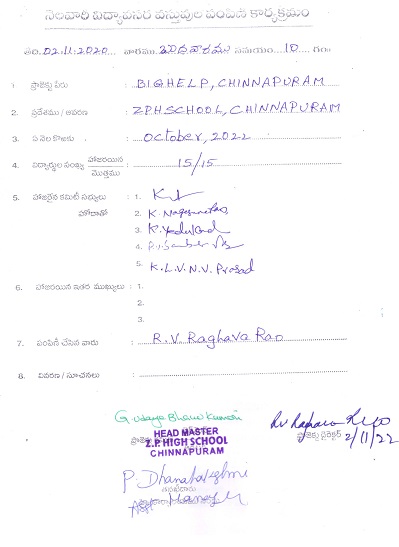 నెలవారి విద్యావసర వస్తువుల పంపిణి కార్యక్రమం
తేది.02.11.2020 వారము బుధవారము సమయం 10 గం॥
1. ప్రాజెక్టు పేరు : BIGHELP, CHINNAPURAM
2. ప్రదేశము / ఆవరణ : ZPHSCHOOL, CHINNAPURAM
3. ఏ నెల కొరకు : October, 2022
4. విద్యార్థుల సంఖ్య హాజరయిన / మొత్తము : 15/15
5. హాజరైన కమిటీ సభ్యులు : 1.
హోదాతో 2. K. Nageswara Rao
3. K.
4.
5. K.L.V.N.V. Prasad
6. హాజరయిన ఇతర ముఖ్యులు : 1.
2.
3.
7. పంపిణీ చేసిన వారు : R.V. Raghava Rao
8. వివరణ / సూచనలు :
G. Udaya Bhanu Kumari
HEAD MASTER
Z.P. HIGH SCHOOL
CHINNAPURAM
ప్రాజెక్టు డైరెక్టర్ 2/11/22
P. Dhanalakshmi